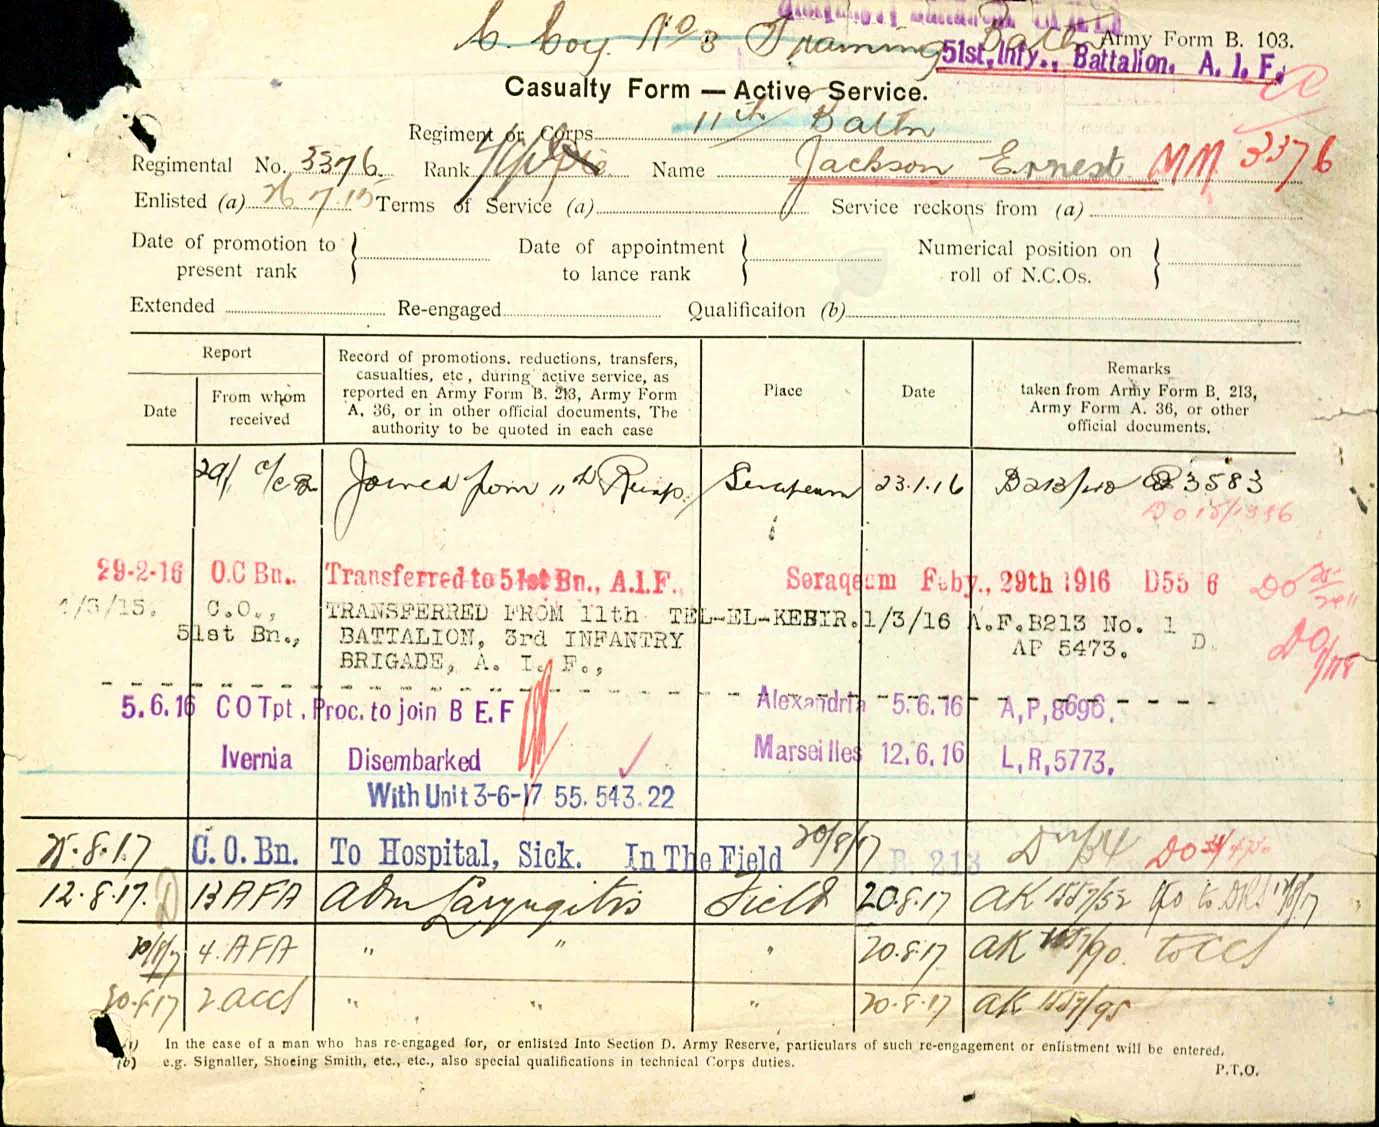 C. Coy. No 3 Training Battn
Army Form B. 103.
51st, Infy., Battalion. A. I. F.
Casualty Form — Active Service.
Regiment or Corps 11th Battn
Regimental No. 3376. Rank Name Jackson Ernest MM 3376
Enlisted (a) 26 7 15 Terms of Service (a) Service reckons from (a)
Date of promotion to present rank } Date of appointment to lance rank } Numerical position on roll of N.C.Os. }
Extended Re-engaged Qualificaiton (b)
Report
Date
From whom received
Record of promotions, reductions, transfers, casualties, etc, during active service, as reported en Army Form B. 213, Army Form A. 36, or in other official documents, The authority to be quoted in each case
Place
Date
Remarks
taken from Army Form B. 213, Army Form A. 36, or other official documents.
Joined from 11th Reinf. Serapeum 23.1.16 B213 3583
29-2-16 O.C Bn.. Transferred to 51st Bn., A.I.F., Seraqeum Feby., 29th 1916 D55 6 DO
1/3/15. C.O., TRANSFERRED FROM 11th TEL-EL-KEBIR. 1/3/16 A.F.B213 No. 1
51st Bn., BATTALION, 3rd INFANTRY AP 5473. D.
BRIGADE, A. I. F.,
5.6.16 C O Tpt. Proc. to join B E.F Alexandria 5.6.16 A,P,8696.
Ivernia Disembarked Marseilles 12.6.16 L,R,5773.
With Unit 3-6-17 55. 543. 22
8.17 C.O.Bn. To Hospital, Sick. In The Field 20/8/17 B 213 DO
12.8.17. 13 AFA Adm Laryngitis Field 20.8.17 AK 1557/52
4. AFA " " " 20.8.17 AK 1557/90. to CCS
2 ACCS " " " 20.8.17 AK 1557/95
In the case of a man who has re-engaged for, or enlisted Into Section D. Army Reserve, particulars of such re-engagement or enlistment will be entered.
(b) e.g. Signaller, Shoeing Smith, etc., etc., also special qualifications in technical Corps duties.
P.T.O.